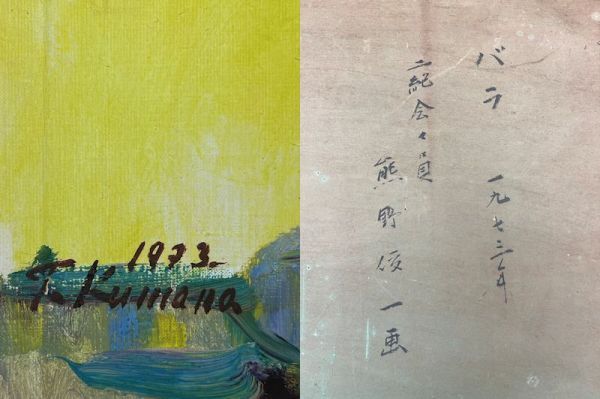 1973.
T. Kumana
バラ 一九七三年
二紀会々員
熊野俊一画